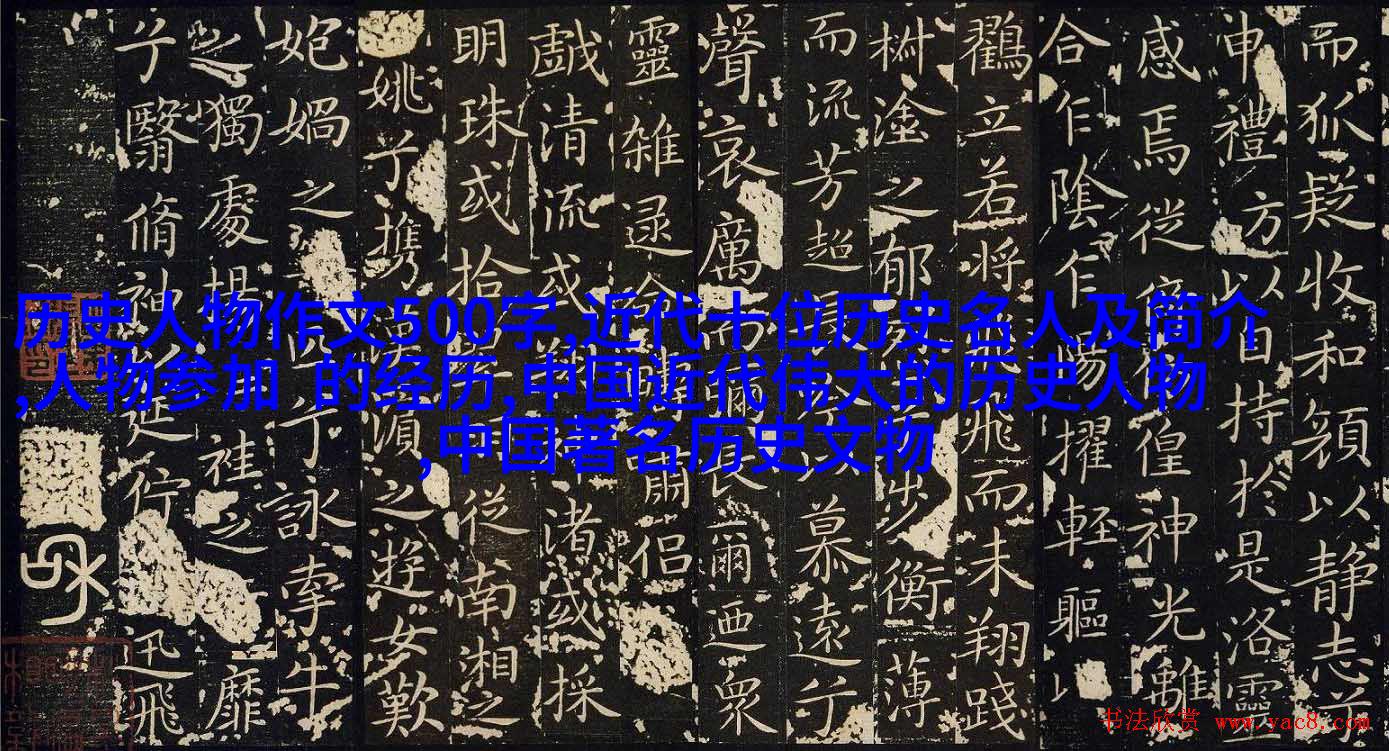 而狐疑收和顔以静志兮
申禮方以自持於是洛靈
感焉徨神光離
合乍陰乍陽擢輕軀以
鸖立若將飛而未翔踐
塗之郁步衡薄
而流芳超慕遠兮
聲哀厲而彌長爾迺眾
靈雜遝命侶
戲清流或渚或採
明珠或拾從南湘之
姚兮携漢濱之遊女歎
媧之匹兮詠牽牛
之獨處揚袿之靡
兮翳脩袖延佇迅飛
历史人物作文500字,近代十位历史名人及简介
,人物参加 的经历,中国近代伟大的历史人物
,中国著名历史文物
书法欣赏 www.yac8.com